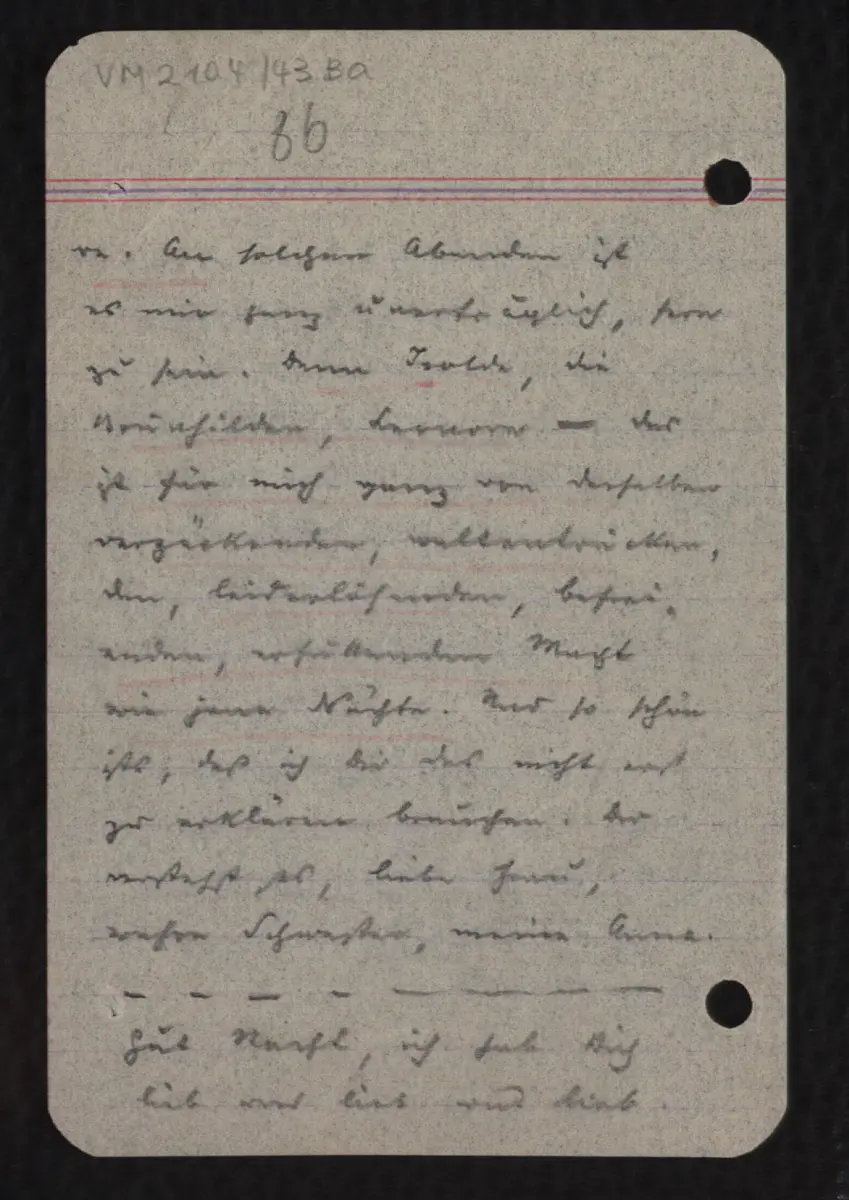 VM 2104/43 Ba
86
re. An solchen Abenden ist
es mir ganz unerträglich, fern
zu sein. Denn Isolde, die
Brünhilden, Leonore — das
ist für mich ganz von derselben
verzückenden, weltentrücken,
den, leiderlösenden, befrei-
enden, erfüllenden Macht
wie jene Nächte. Und so schön
ists, daß ich Dir das nicht erst
zu erklären brauchen. Du
verstehst es, liebe Frau,
wahre Schwester, meine Anna.
Gut Nacht, ich hab Dich
lieb und lieb und lieb.